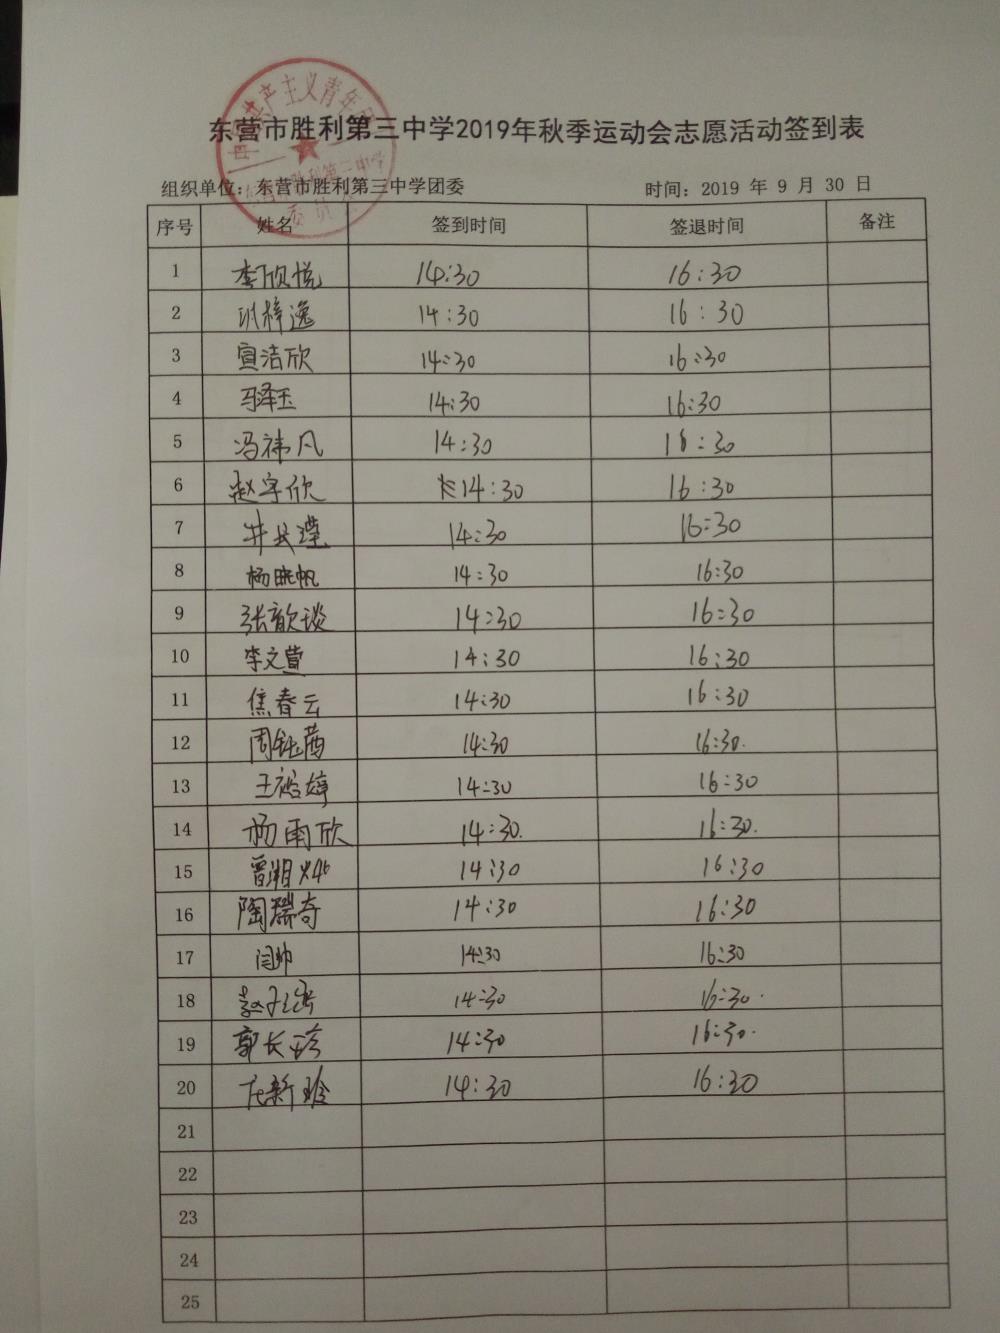 东营市胜利第三中学2019年秋季运动会志愿活动签到表
组织单位：东营市胜利第三中学团委 时间：2019 年 9 月 30 日
序号 姓名 签到时间 签退时间 备注
1 李欣悦 14:30 16:30
2 梓逸 14:30 16:30
3 宣洁欣 14:30 16:30
4 马泽玉 14:30 16:30
5 冯祎凡 14:30 16:30
6 赵宇欣 14:30 16:30
7 井长滢 14:30 16:30
8 杨晓帆 14:30 16:30
9 张歆琰 14:30 16:30
10 李文萱 14:30 16:30
11 焦春云 14:30 16:30
12 周钰茜 14:30 16:30.
13 王婷 14:30 16:30
14 杨雨欣 14:30. 16:30.
15 曾湘 14:30 16:30
16 陶瑞奇 14:30 16:30
17 闫帅 14:30 16:30
18 赵子 14:30 16:30.
19 郭长 14:30 16:30.
20 新玲 14:30 16:30
21
22
23
24
25